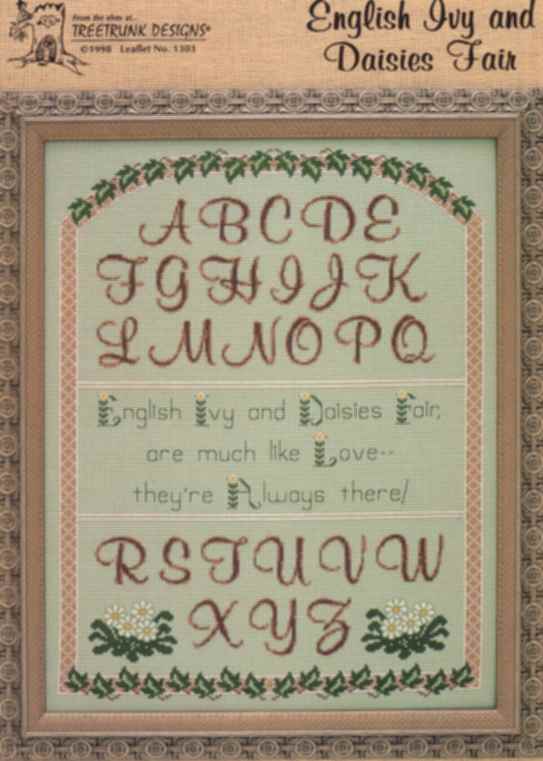 From the elms at...
TREETRUNK DESIGNS®
©1998 Leaflet No. 1303
English Ivy and
Daisies Fair
A B C D E
F G H I J K
L M N O P Q
English Ivy and Daisies Fair,
are much like Love--
they're Always there!
R S T U V W
X Y Z